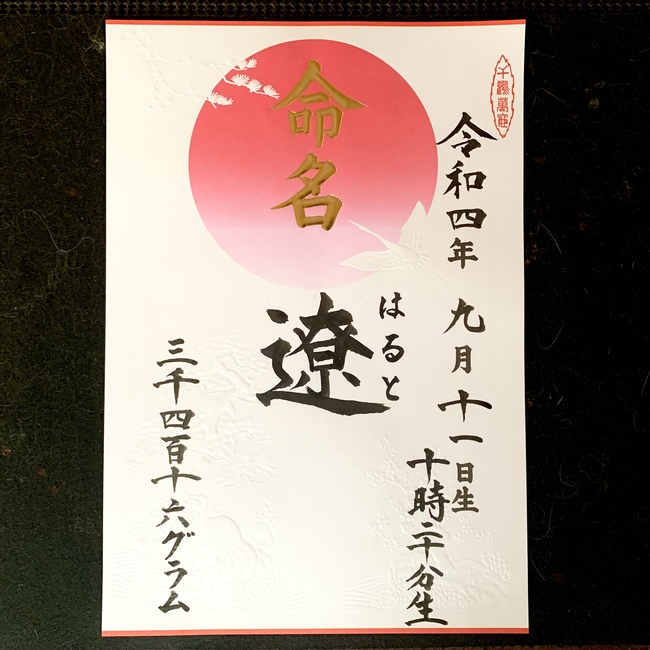 命名
令和四年 九月十一日生
十時二十分生
はると
遼
三千四百十六グラム